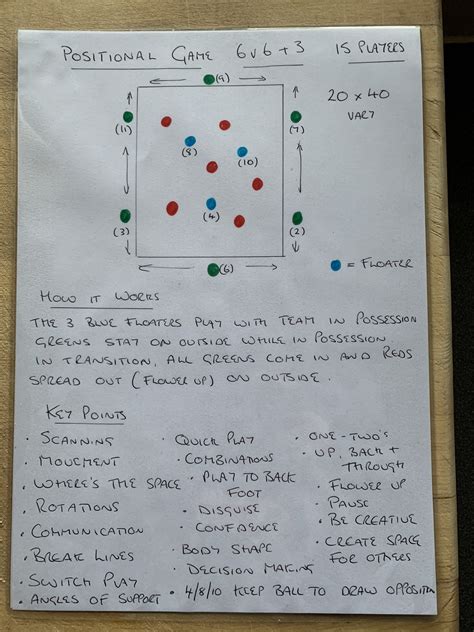 POSITIONAL GAME 6v6+3 15 PLAYERS
(9)
20 x 40
VARY
(11)
(7)
(8)
(10)
(4)
(3)
(2)
(6)
= FLOATER
HOW IT WORKS
THE 3 BLUE FLOATERS PLAY WITH TEAM IN POSSESSION
GREENS STAY ON OUTSIDE WHILE IN POSSESSION
IN TRANSITION, ALL GREENS COME IN AND REDS
SPREAD OUT (FLOWER UP) ON OUTSIDE.
KEY POINTS
• SCANNING
• MOVEMENT
• WHERE'S THE SPACE
• ROTATIONS
• COMMUNICATION
• BREAK LINES
• SWITCH PLAY
• ANGLES OF SUPPORT
• QUICK PLAY
• COMBINATIONS
• PLAY TO BACK
FOOT
• DISGUISE
• CONFIDENCE
• BODY SHAPE
• DECISION MAKING
• 4/8/10 KEEP BALL TO DRAW OPPOSITION
• ONE-TWO'S
• UP, BACK +
THROUGH
• FLOWER UP
• PAUSE
• BE CREATIVE
• CREATE SPACE
FOR OTHERS